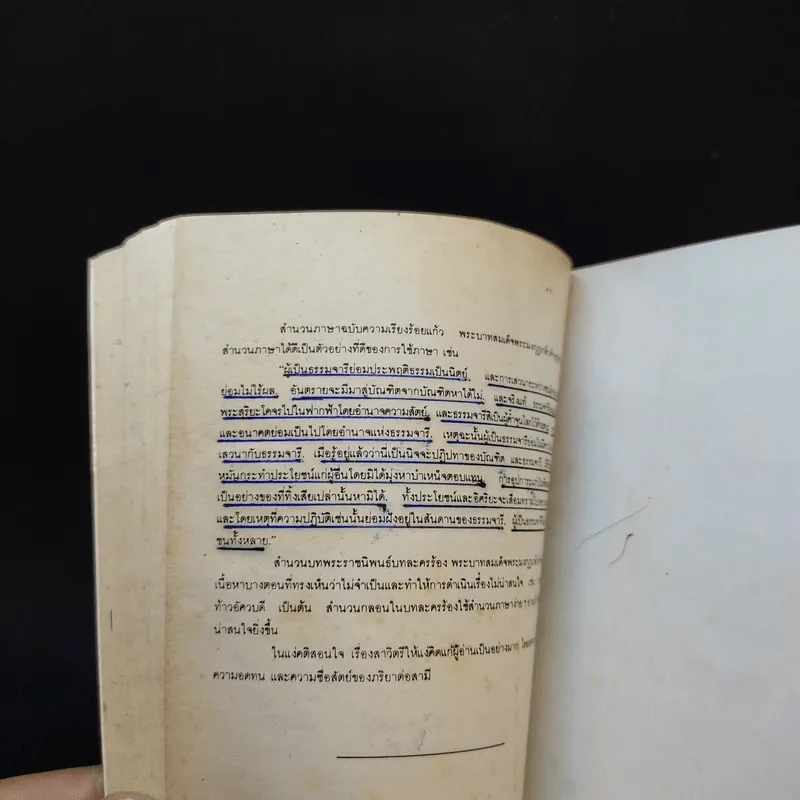 สำนวนภาษาฉบับความเรียงร้อยแก้ว พระบาทสมเด็จพระมงกุฎเกล้า
สำนวนภาษาได้ดีเป็นตัวอย่างที่ดีของการใช้ภาษา เช่น
"ผู้เป็นธรรมจารีย่อมประพฤติธรรมเป็นนิตย์, และการเสวนาระหว่าง
ย่อมไม่ไร้ผล, อันตรายจะมีมาสู่บัณฑิตจากบัณฑิตหาได้ไม่, และจริงแท้
พระสริยะโคจรไปในฟากฟ้าโดยอำนาจความสัตย์, และธรรมจารีสิเป็นผู้ค้ำจุนโลกไว้ด้วย
และอนาคตย่อมเป็นไปโดยอำนาจแห่งธรรมจารี, เหตุฉะนั้นผู้เป็นธรรมจารี
เสวนากับธรรมจารี, เมื่อรู้อยู่แล้วว่านี่เป็นนิจจะปฏิปทาของบัณฑิต และธรรมจารี
หมั่นกระทำประโยชน์แก่ผู้อื่นโดยมิได้มุ่งหาบำเหน็จตอบแทน,
เป็นอย่างของที่ทิ้งเสียเปล่านั้นหามิได้, ทั้งประโยชน์และอิศริยะจะเสื่อมทราม
และโดยเหตุที่ความปฏิบัติเช่นนั้นย่อมฝังอยู่ในสันดานของธรรมจารี, ผู้เป็น
ชนทั้งหลาย."
สำนวนบทพระราชนิพนธ์บทละครร้อง พระบาทสมเด็จพระมงกุฎเกล้า
เนื้อหาบางตอนที่ทรงเห็นว่าไม่จำเป็นและทำให้การดำเนินเรื่องไม่น่าสนใจ เช่น
ท้าวอัศวบดี เป็นต้น สำนวนกลอนในบทละครร้องใช้สำนวนภาษาง่าย ๆ
น่าสนใจยิ่งขึ้น
ในแง่คติสอนใจ เรื่องสาวิตรีให้แง่คิดแก่ผู้อ่านเป็นอย่างมาก
ความอดทน และความซื่อสัตย์ของภริยาต่อสามี